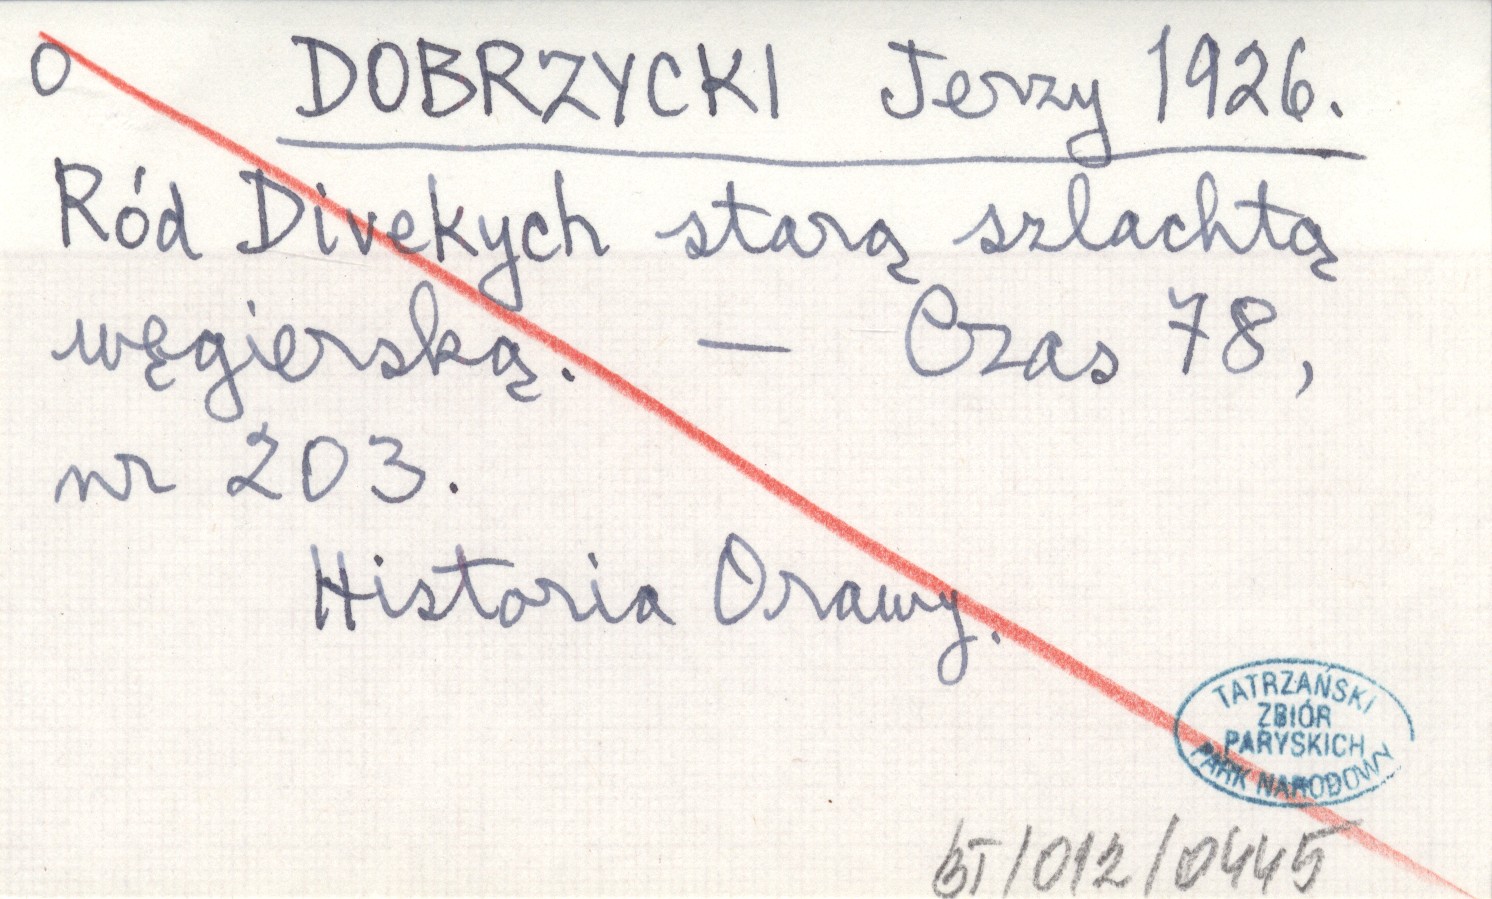 O DOBRZYCKI Jerzy 1926.
Ród Divekych starą szlachtą
węgierską. — Czas 78,
nr 203.
Historia Orawy.
TATRZAŃSKI
ZBIÓR
PARYSKICH
PARK NARODOWY
BT/012/0445